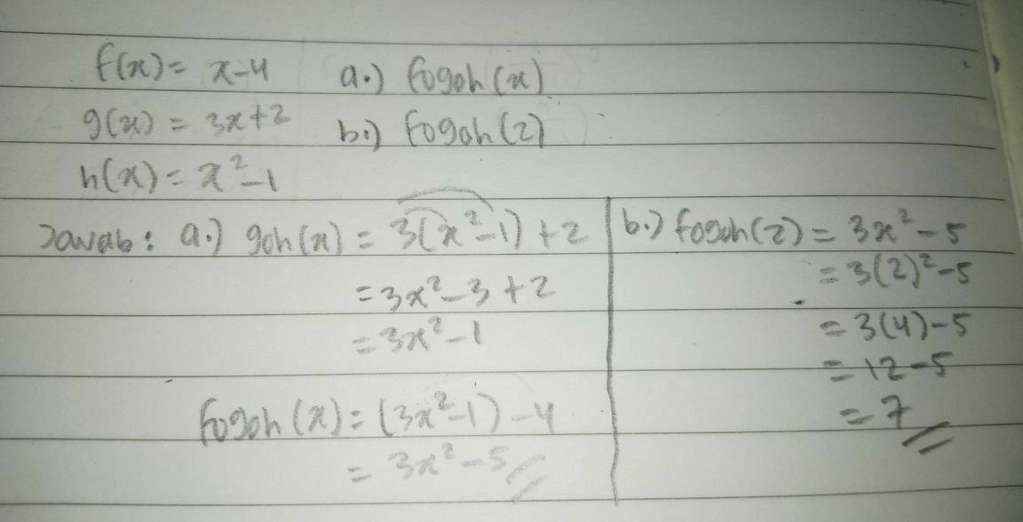 f(x) = x-4 a.) fogoh (x)
g(x) = 3x+2 b.) fogoh (2)
h(x) = x²-1
Jawab : a.) goh (x) = 3(x²-1) + 2
= 3x²-3 +2
= 3x²-1
fogoh (x) = (3x²-1) -4
= 3x²-5
b.) fogoh (2) = 3x²-5
= 3(2)²-5
= 3(4)-5
= 12-5
= 7